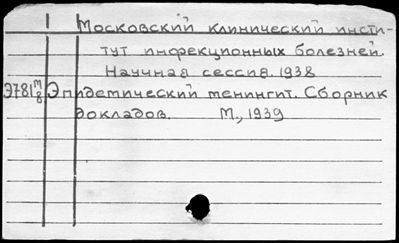 Московский клинический инсти-
тут инфекционных болезней.
Научная сессия. 1938
Э781 м/8 Эпидемический менингит. Сборник
докладов. М., 1939